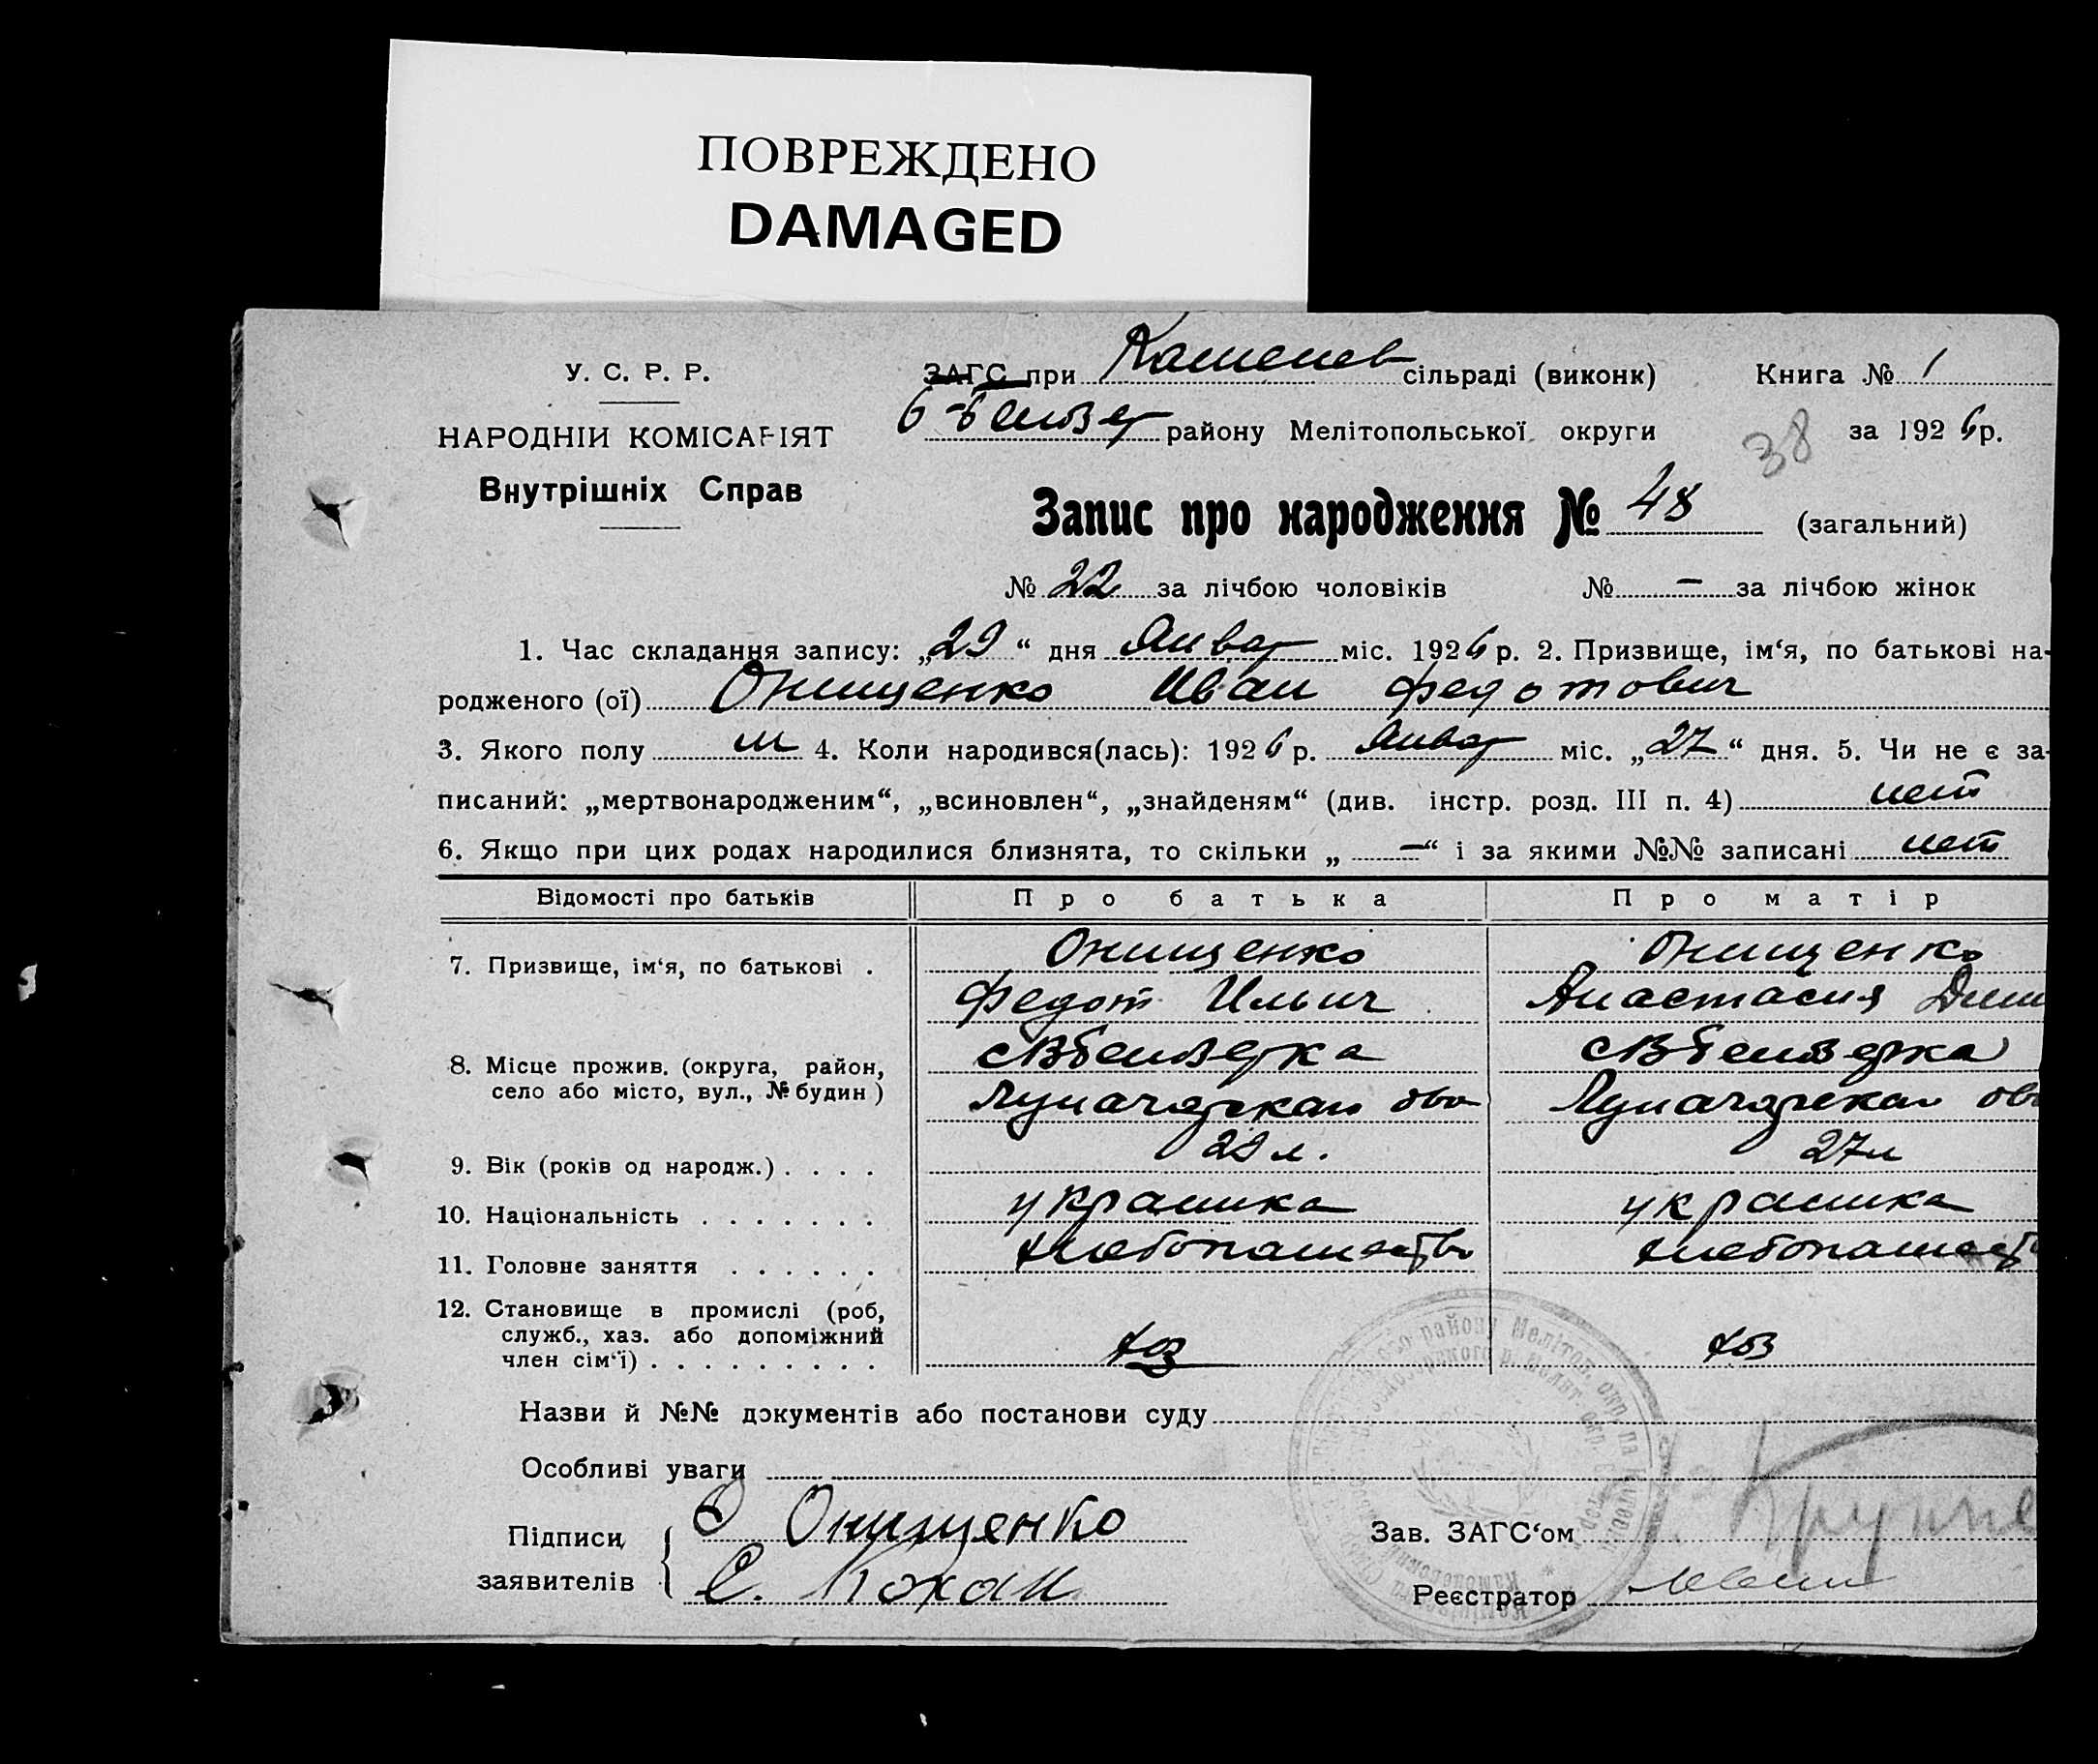 ПОВРЕЖДЕНО
DAMAGED
У. С. Р. Р.
НАРОДНІЙ КОМІСАРІЯТ
Внутрішніх Справ
ЗАГС при Каменев сільраді (виконк) Книга № 1
району Мелітопольської округи за 1926 р.
38
Запис про народження № 48 (загальний)
№ 22 за лічбою чоловіків № — за лічбою жінок
1. Час складання запису: „29“ дня Январ міс. 1926 р. 2. Призвище, ім‘я, по батькові на-
родженого (ої) Онищенко Иван Федотович
3. Якого полу м 4. Коли народився(лась): 1926 р. Январ міс. „27“ дня. 5. Чи не є за-
писаний: „мертвонародженим“, „всиновлен“, „знайденям“ (див. інстр. розд. III п. 4) нет
6. Якщо при цих родах народилися близнята, то скільки „—“ і за якими №№ записані нет
Відомості про батьків Про батька Про матір
7. Призвище, ім‘я, по батькові . Онищенко Онищенко
Федот Ильич Анастасия
8. Місце прожив. (округа, район,
село або місто, вул., № будин)
9. Вік (років од народж.) . . . . 29 л. 27 л
10. Національність . . . . . . .
11. Головне заняття . . . . . . хлебопашество хлебопашест
12. Становище в промислі (роб,
служб., хаз. або допоміжний
член сім‘ї) . . . . . . . . . хоз хоз
Назви й №№ документів або постанови суду
Особливі уваги
Підписи Онищенко Зав. ЗАГС‘ом
заявителів С. Кохан Реєстратор